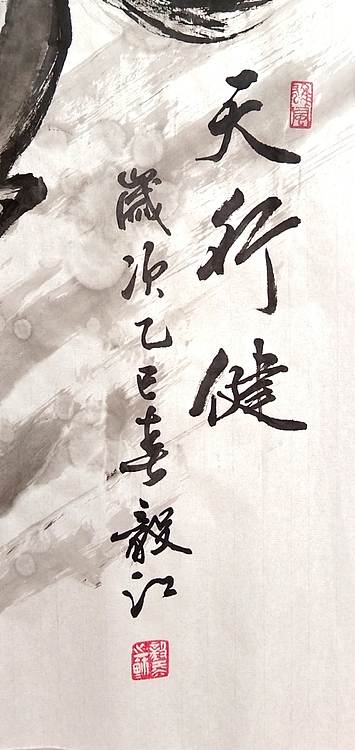 天行健
歲次乙巳春毅江